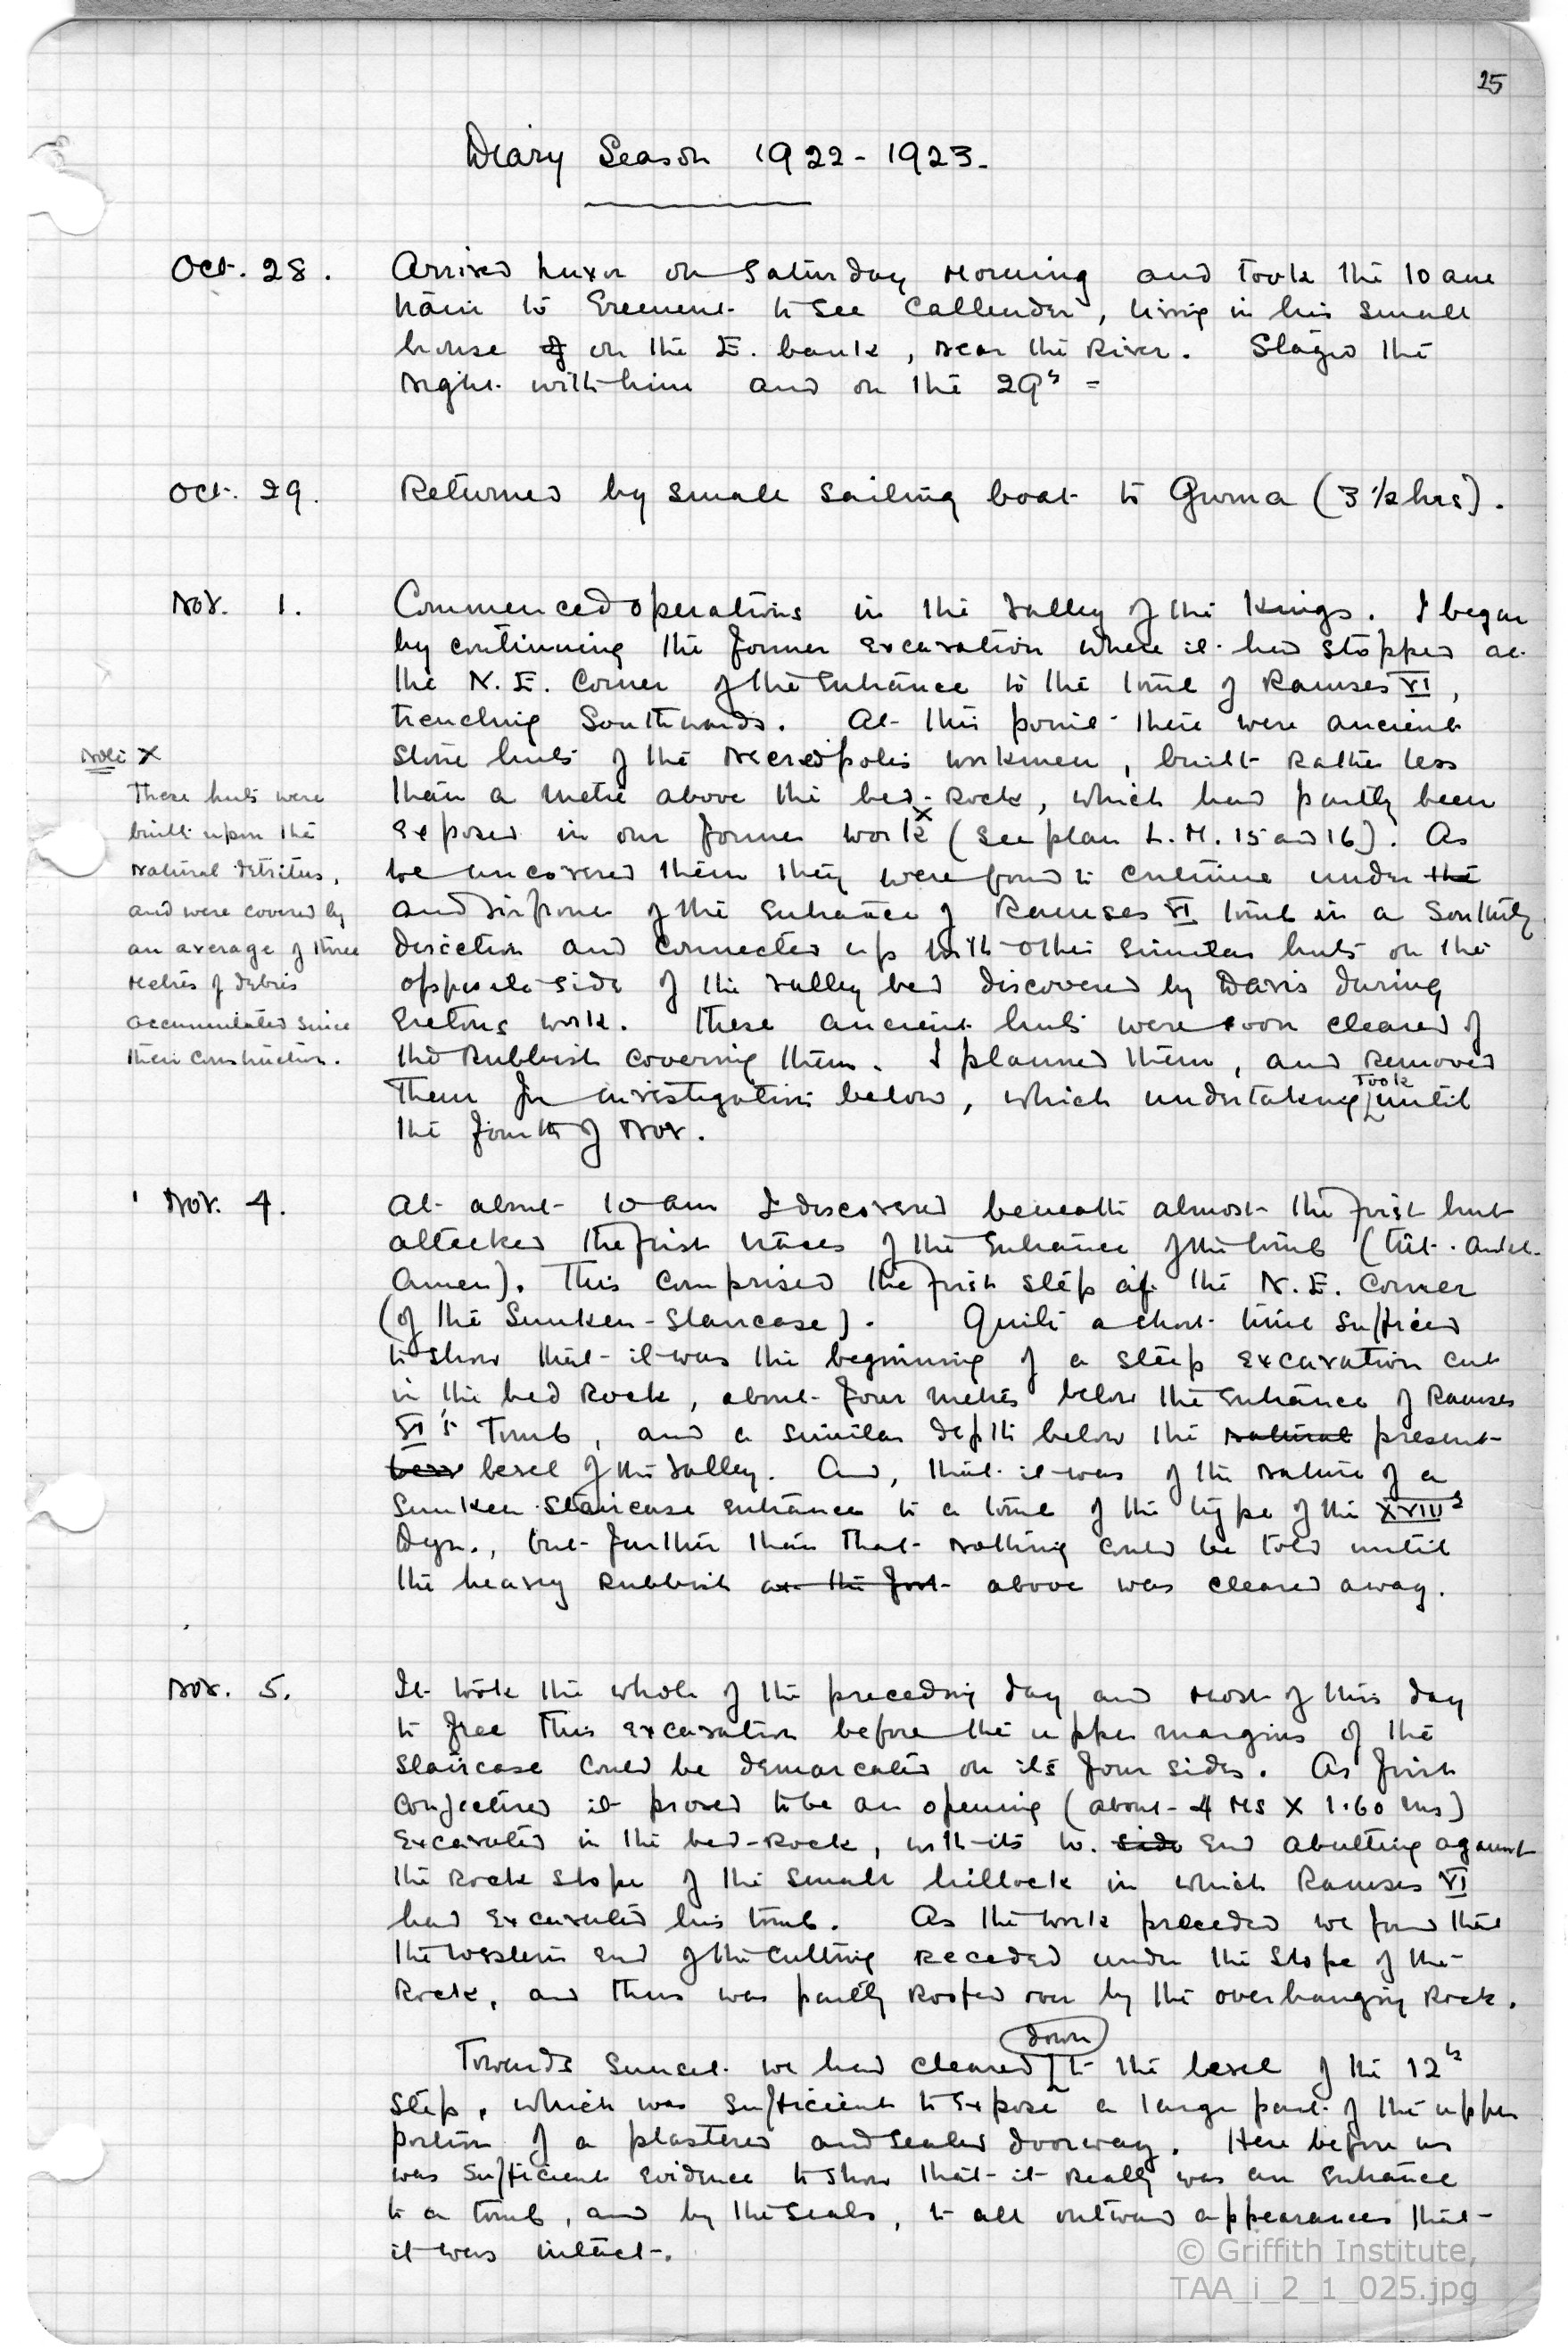 25
Diary Season 1922-1923.
Oct. 28. Arrived Luxor on Saturday morning and took the 10 am
train to Erement to see Callender, living in his small
house of on the E. bank, near the River. Stayed the
night with him and on the 29th =
Oct. 29. Returned by small sailing boat to Gurna (3 1/2 hrs).
Nov. 1. Commenced operations in the Valley of the Kings. I began
by continuing the former excavation where it had stopped at
the N.E. corner of the entrance to the tomb of Ramses VI,
trenching Southwards. At this point there were ancient
stone huts of the Necropolis workmen, built rather less
than a metre above the bed-rock, which had partly been
exposed in our former work x (see plan L.M. 15 and 16). As
we uncovered them they were found to continue under the
and in front of the entrance of Ramses VI tomb in a Southerly
direction and connected up with other similar huts on the
opposite side of the valley bed discovered by Davis during
Eretons work. These ancient huts were soon cleared of
the rubbish covering them. I planned them, and removed
them for investigation below, which undertaking took until
the fourth of Nov.
Note X
These huts were
built upon the
natural detritus,
and were covered by
an average of three
metres of debris
accumulated since
their construction.
Nov. 4. At about 10 am I discovered beneath almost the first hut
attacked the first traces of the entrance of the tomb (Tut.ankh.
Amen). This comprised the first step of the N.E. corner
(of the sunken-staircase). Quite a short time sufficed
to show that it was the beginning of a steep excavation cut
in the bed rock, about four metres below the entrance of Ramses
VI's Tomb, and a similar depth below the natural present
level of the valley. And, that it was of the nature of a
sunken staircase entrance to a tomb of the type of the XVIIIth
Dyn., but further than that nothing could be told until
the heavy rubbish at the foot above was cleared away.
Nov. 5. It took the whole of the preceding day and most of this day
to free this excavation before the upper margins of the
staircase could be demarcated on its four sides. As first
conjectured it proved to be an opening (about 4 Ms X 1.60 ms)
excavated in the bed-rock, with its W. side end abutting against
the rock slope of the small hillock in which Ramses VI
had excavated his tomb. As the work preceded we found that
the western end of the cutting receded under the slope of the
Rock, and thus was partly roofed over by the overhanging rock.
Towards sunset we had cleared down to the level of the 12th
step, which was sufficient to expose a large part of the upper
portion of a plastered and sealed doorway. Here before us
was sufficient evidence to show that it really was an entrance
to a tomb, and by the seals, to all outward appearances that
it was intact.
© Griffith Institute,
TAA_i_2_1_025.jpg